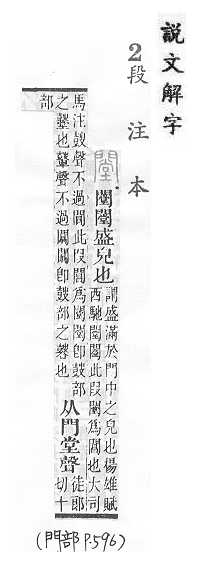 說文解字
2段注本
闛 闛闛盛皃也
謂盛滿於門中之皃也揚雄賦
西馳闛闛此叚闛爲閶也大司
馬注鼓聲不過閶此叚閶爲闛闛卽鼓部
之鼞也鼙聲不過闒闒卽鼓部之也
从門堂聲
徒郎
切十
部
(門部P.596)